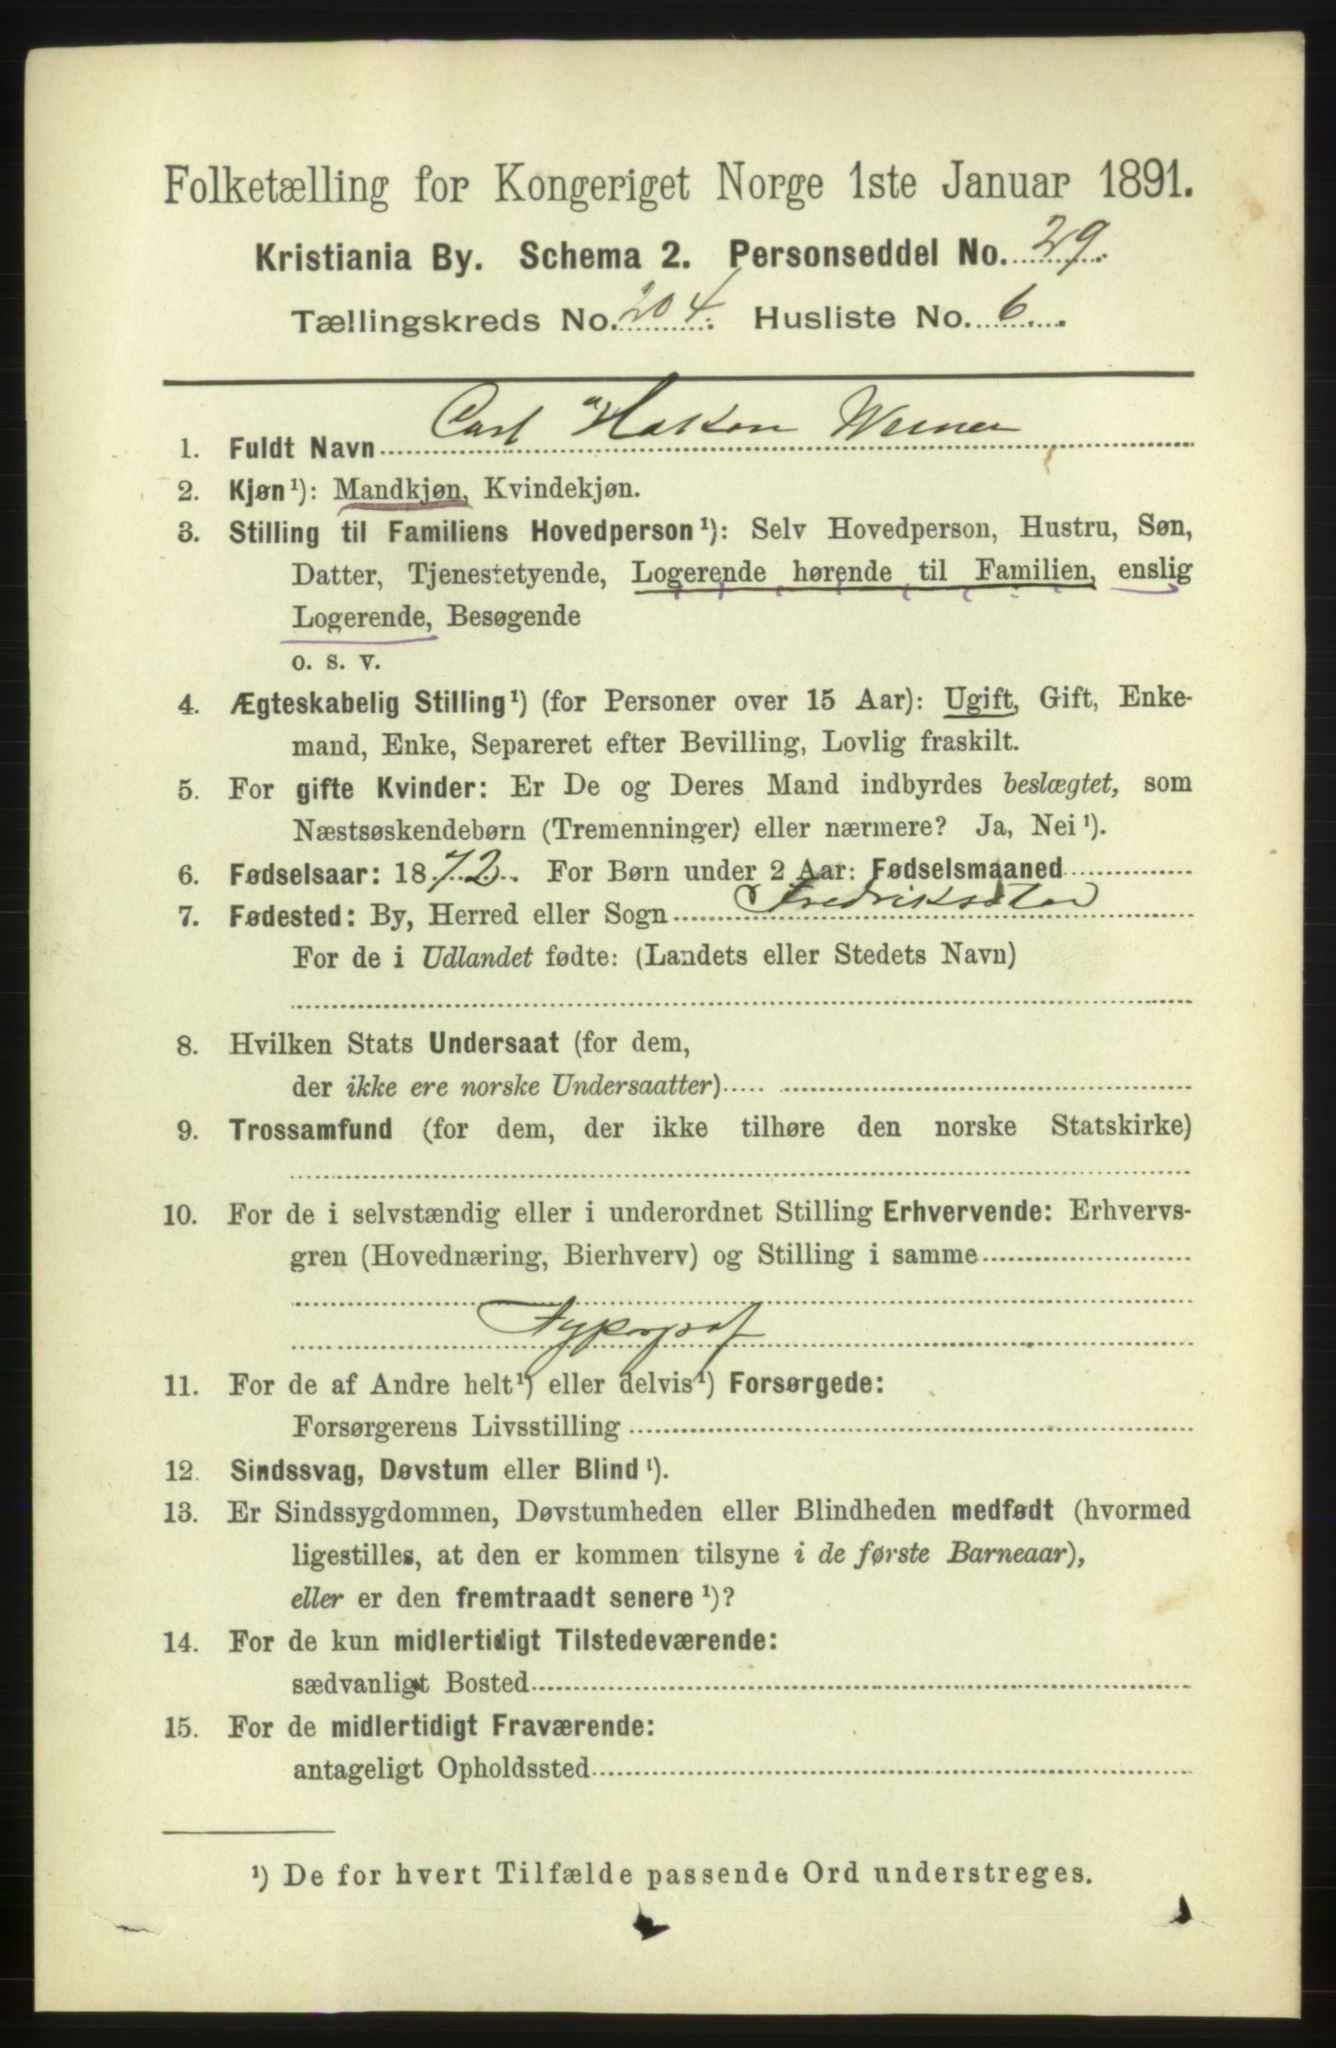 Folketælling for Kongeriget Norge 1ste Januar 1891.
Kristiania By. Schema 2. Personseddel No. 29.
Tællingskreds No. 204. Husliste No. 6.
1. Fuldt Navn Carl Hakon Werner
2. Kjøn¹): Mandkjøn, Kvindekjøn.
3. Stilling til Familiens Hovedperson¹): Selv Hovedperson, Hustru, Søn,
Datter, Tjenestetyende, Logerende hørende til Familien, enslig
Logerende, Besøgende
o. s. v.
4. Ægteskabelig Stilling¹) (for Personer over 15 Aar): Ugift, Gift, Enke-
mand, Enke, Separeret efter Bevilling, Lovlig fraskilt.
5. For gifte Kvinder: Er De og Deres Mand indbyrdes beslægtet, som
Næstsøskendebørn (Tremenninger) eller nærmere? Ja, Nei¹).
6. Fødselsaar: 1872. For Børn under 2 Aar: Fødselsmaaned
7. Fødested: By, Herred eller Sogn Fredrikstad
For de i Udlandet fødte: (Landets eller Stedets Navn)
8. Hvilken Stats Undersaat (for dem,
der ikke ere norske Undersaatter)
9. Trossamfund (for dem, der ikke tilhøre den norske Statskirke)
10. For de i selvstændig eller i underordnet Stilling Erhvervende: Erhvervs-
gren (Hovednæring, Bierhverv) og Stilling i samme
11. For de af Andre helt¹) eller delvis¹) Forsørgede:
Forsørgerens Livsstilling
12. Sindssvag, Døvstum eller Blind¹).
13. Er Sindssygdommen, Døvstumheden eller Blindheden medfødt (hvormed
ligestilles, at den er kommen tilsyne i de første Barneaar),
eller er den fremtraadt senere¹)?
14. For de kun midlertidigt Tilstedeværende:
sædvanligt Bosted
15. For de midlertidigt Fraværende:
antageligt Opholdssted
¹) De for hvert Tilfælde passende Ord understreges.